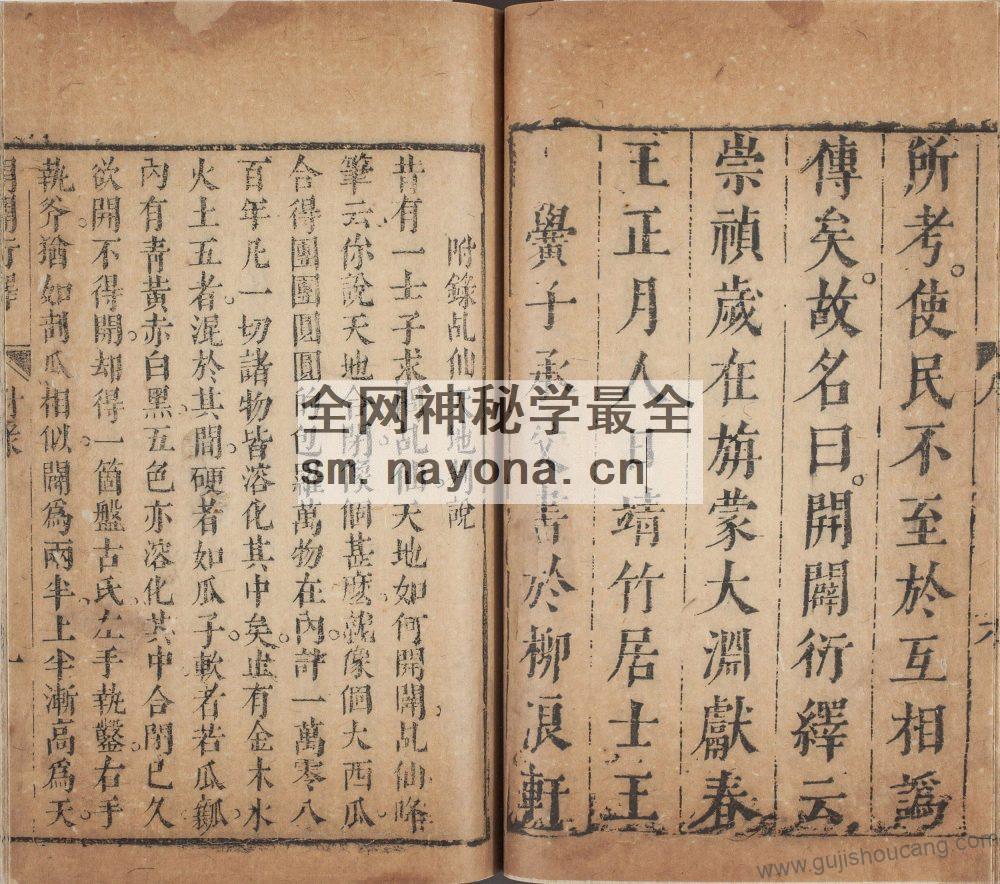 所考。使民不至於互相譌
傳矣。故名曰。開闢衍繹云
崇禎歲在旃蒙大淵獻春
王正月人日靖竹居士王
黌子承父書於柳浪軒
附錄乩仙天地判說
昔有一士子求仙乩天地如何開闢乩仙降
筆云你說天地合閉像個甚麼就像個大西瓜
合得團團圓圓包羅萬物在內計一萬零八
百年凡一切諸物皆溶化其中矣止有金木水
火土五者。混於其間硬者如瓜子軟者若瓜瓤。
內有青黃赤白黑。五色亦溶化其中合閉已久
欲開不得開。却得一箇盤古氏。左手執鑿右手
執斧猶如剖瓜相似闢為兩半。上半漸高為天
開闢衍繹 附錄 一
六
全网神秘学最全
sm.nayona.cn
www.gujishoucang.com